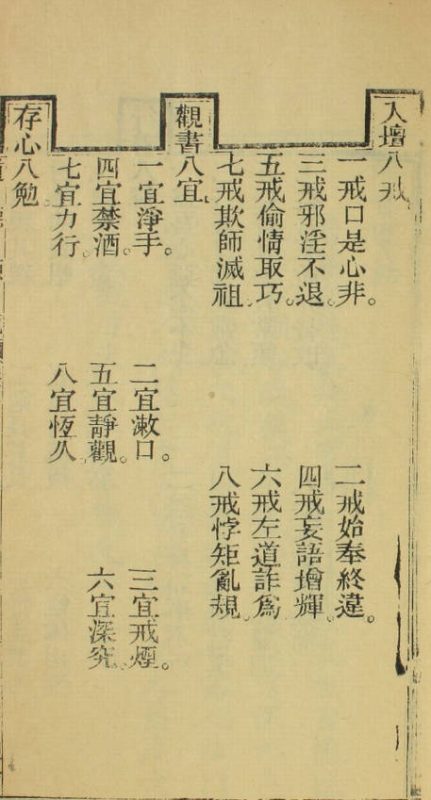 入壇八戒。
一戒口是心非。 二戒始奉終違。
三戒邪淫不退。 四戒妄語增輝。
五戒偷情取巧。 六戒左道詐為。
七戒欺師滅祖。 八戒悖矩亂規。
觀書八宜。
一宜淨手。 二宜漱口。 三宜戒煙。
四宜禁酒。 五宜靜觀。 六宜深究。
七宜力行。 八宜恆久
存心八勉。